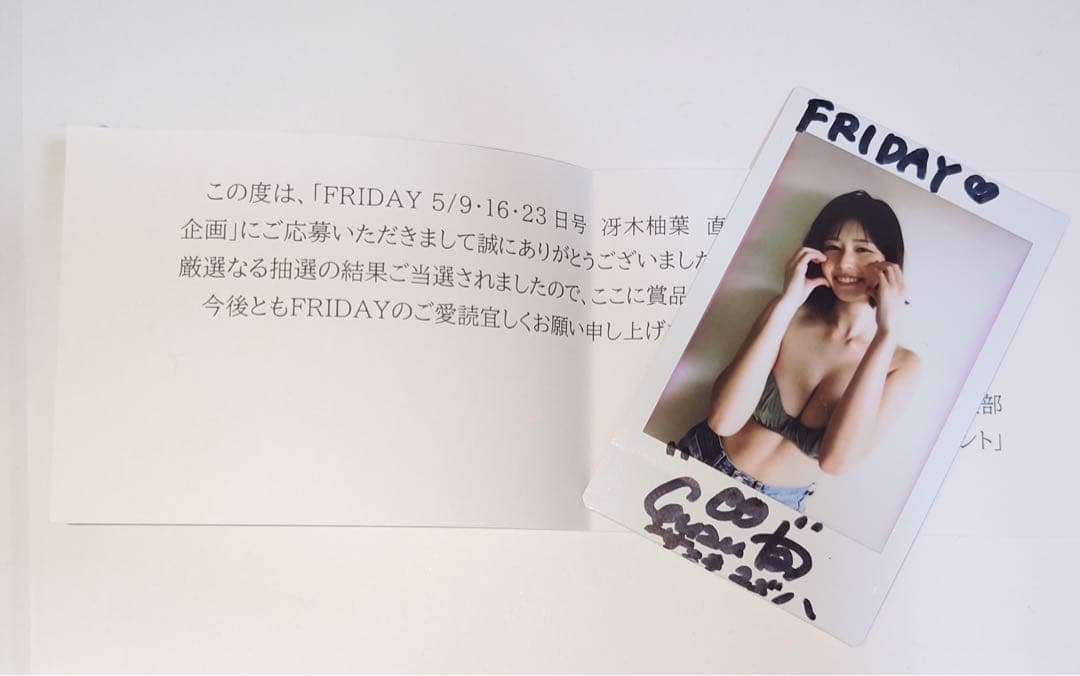 この度は、「FRIDAY 5/9・16・23日号 冴木柚葉 直
企画」にご応募いただきまして誠にありがとうございました
厳選なる抽選の結果ご当選されましたので、ここに賞品
今後ともFRIDAYのご愛読宜しくお願い申し上げ
部
ント」
FRIDAY♡